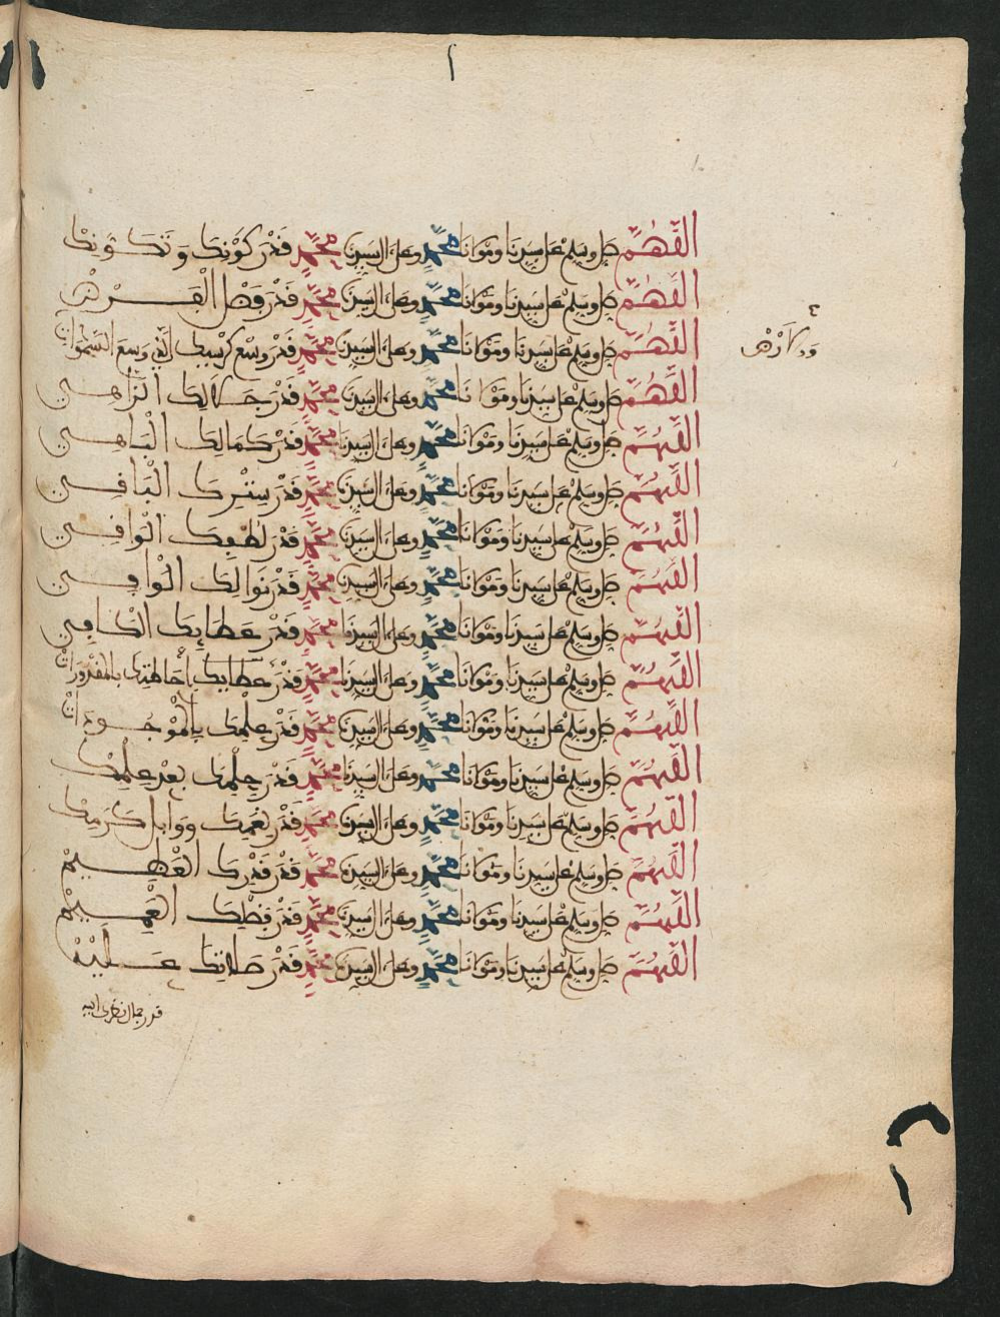 اللهم صل وسلم على سيدنا ومولانا محمد وعلى ال سيدنا محمد قدر كونك وتكوينك
اللهم صل وسلم على سيدنا ومولانا محمد وعلى ال سيدنا محمد قدر فضل
اللهم صل وسلم على سيدنا ومولانا محمد وعلى ال سيدنا محمد قدر وسع كرسيك الذي وسع السموات
اللهم صل وسلم على سيدنا ومولانا محمد وعلى ال سيدنا محمد قدر جلالك الزاهي
اللهم صل وسلم على سيدنا ومولانا محمد وعلى ال سيدنا محمد قدر كمالك الباهي
اللهم صل وسلم على سيدنا ومولانا محمد وعلى ال سيدنا محمد قدر سترك الباقي
اللهم صل وسلم على سيدنا ومولانا محمد وعلى ال سيدنا محمد قدر لطفك الوافي
اللهم صل وسلم على سيدنا ومولانا محمد وعلى ال سيدنا محمد قدر نوالك الوافي
اللهم صل وسلم على سيدنا ومولانا محمد وعلى ال سيدنا محمد قدر عطايك الكافي
اللهم صل وسلم على سيدنا ومولانا محمد وعلى ال سيدنا محمد قدر احاطتك بالمقدورات
اللهم صل وسلم على سيدنا ومولانا محمد وعلى ال سيدنا محمد قدر علمك بالموجودات
اللهم صل وسلم على سيدنا ومولانا محمد وعلى ال سيدنا محمد قدر حلمك بعد علمك
اللهم صل وسلم على سيدنا ومولانا محمد وعلى ال سيدنا محمد قدر نعمك ووابل كرمك
اللهم صل وسلم على سيدنا ومولانا محمد وعلى ال سيدنا محمد قدر قدرك العظيم
اللهم صل وسلم على سيدنا ومولانا محمد وعلى ال سيدنا محمد قدر فضلك العميم
اللهم صل وسلم على سيدنا ومولانا محمد وعلى ال سيدنا محمد قدر صلاتك عليه